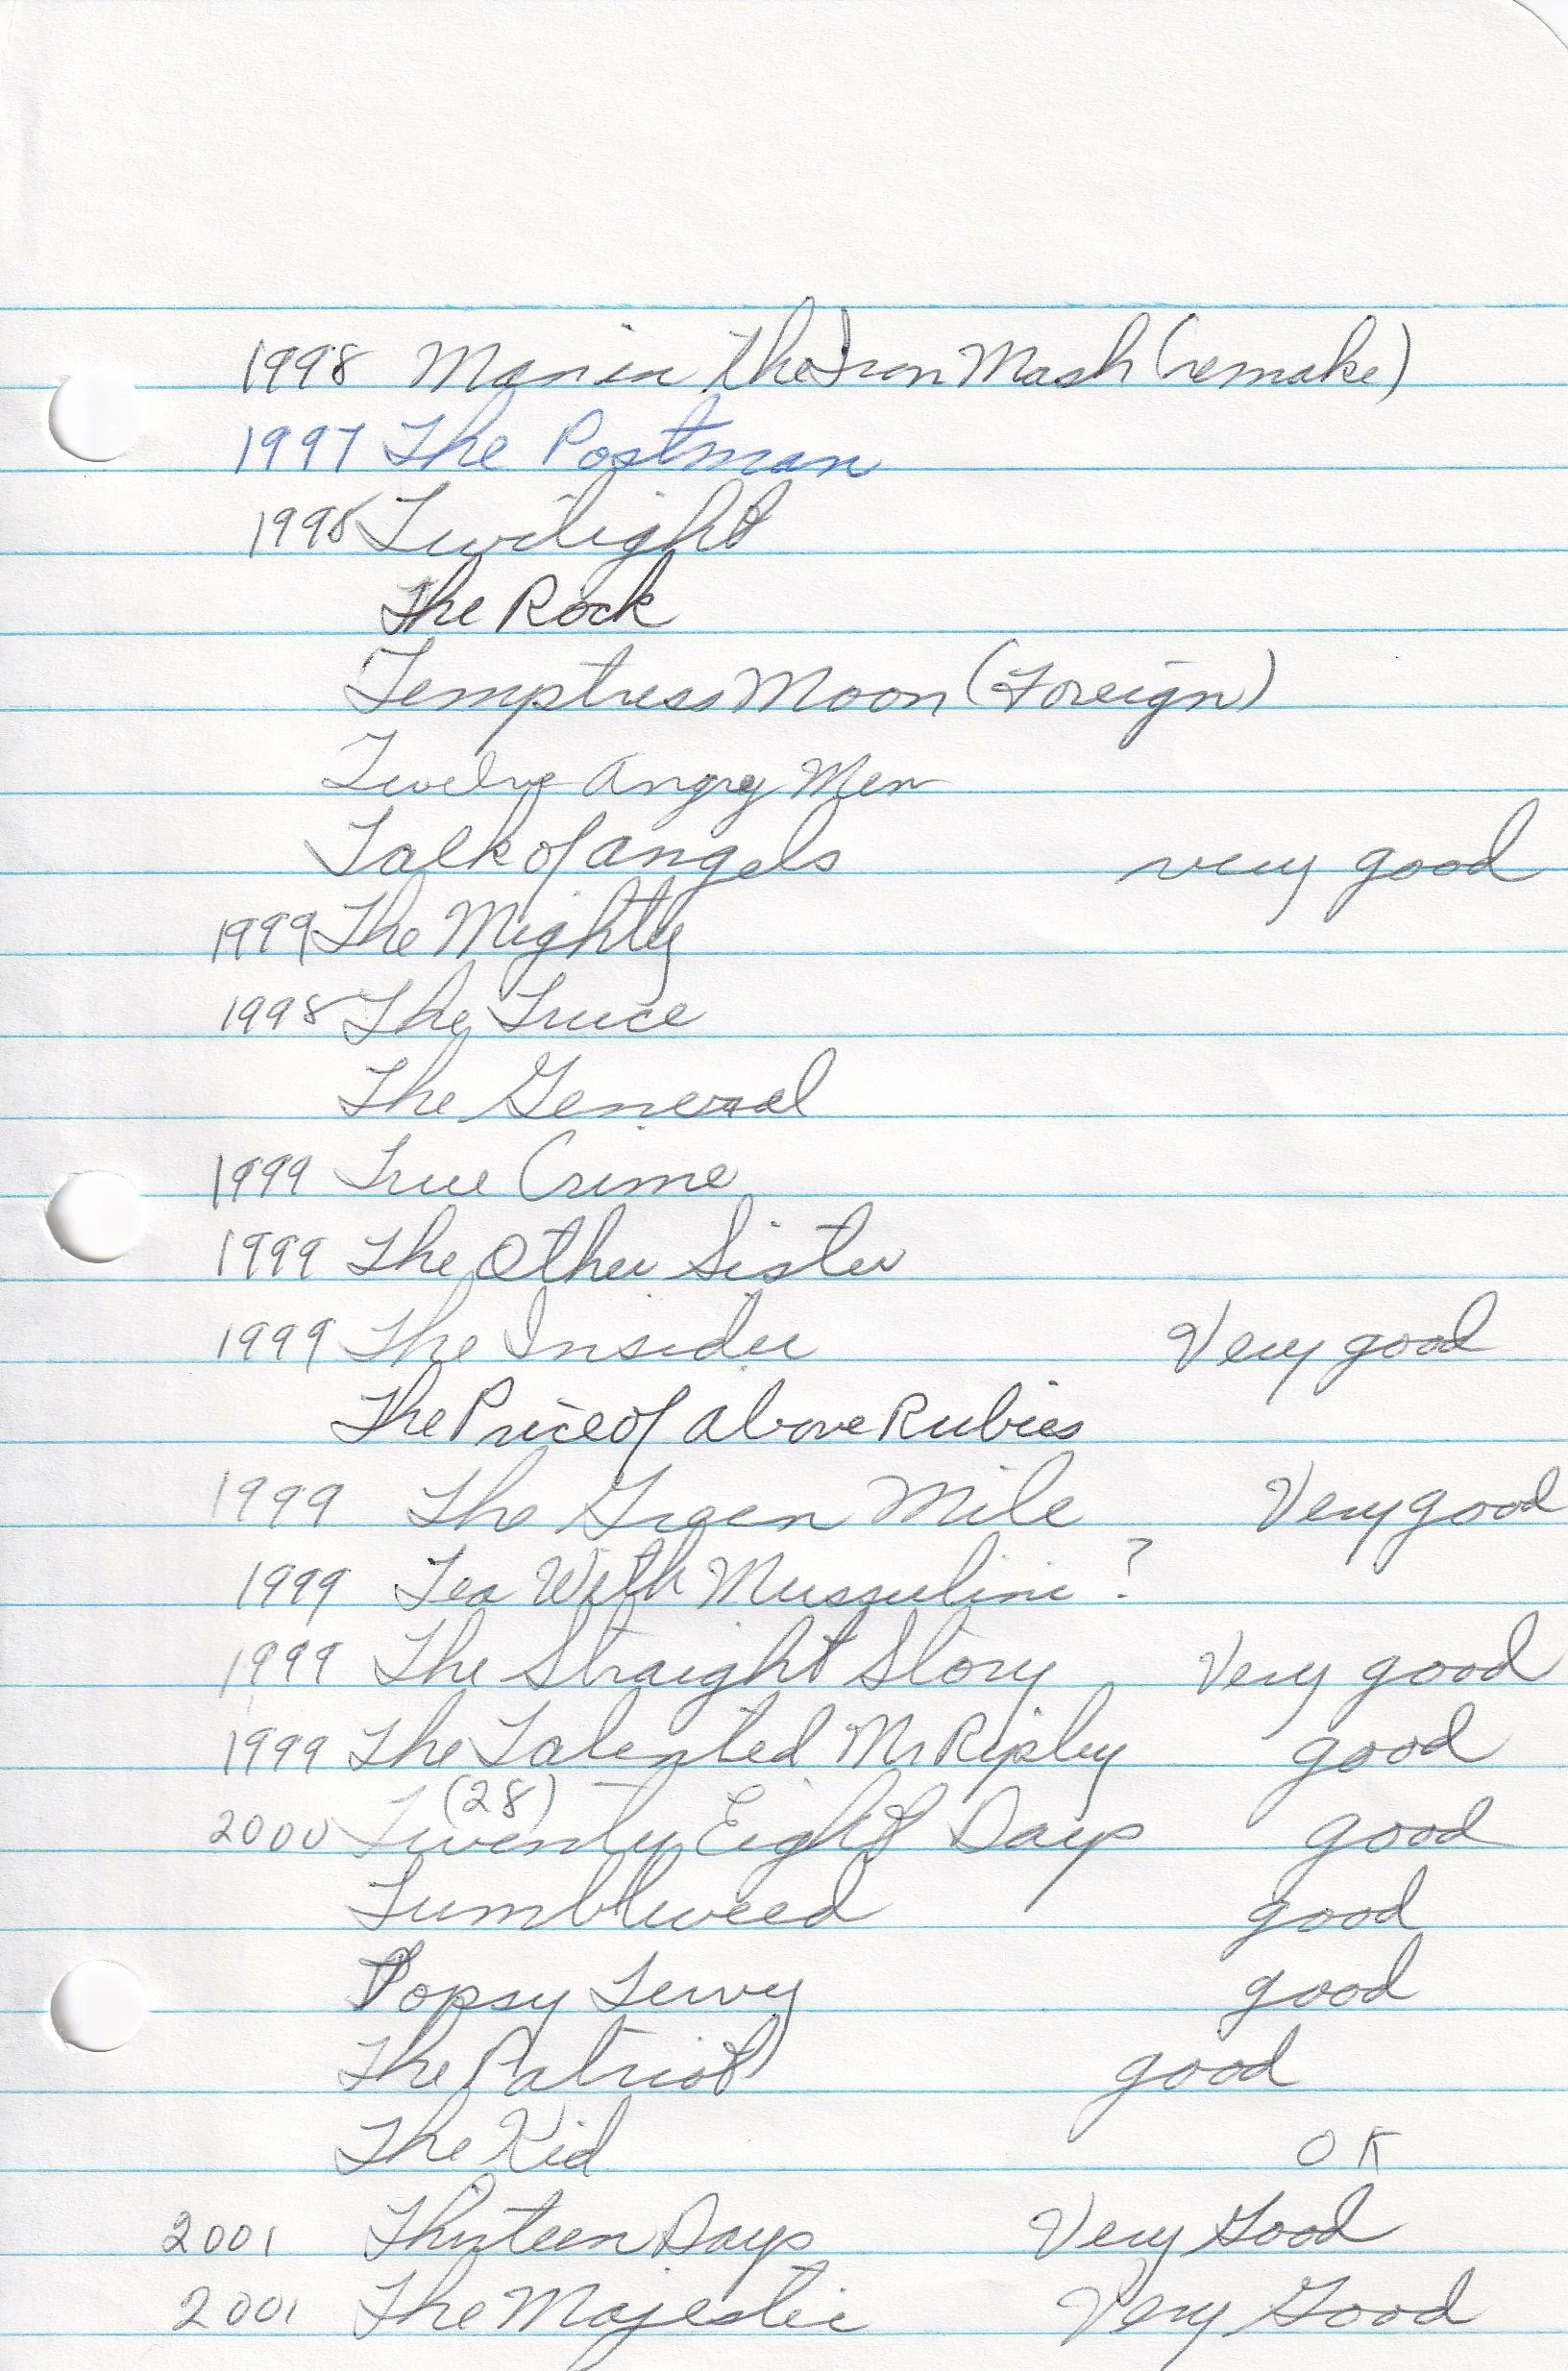 1998 Man in the Iron Mask (remake)
1997 The Postman
1998 Twilight
The Rock
Temptress Moon (Foreign)
Twelve Angry Men
Talk of Angels very good
1999 The Mighty
1998 The Truce
The General
1999 True Crime
1999 The Other Sister
1999 The Insider Very good
The Price of above Rubies
1999 The Green Mile Very good
1999 Tea With Mussulini ?
1999 The Straight Story Very good
1999 The Talented Mr Ripley good
(28)
2000 Twenty Eight Days good
Tumbleweed good
Topsy Turvy good
The Patriot good
The Kid OK
2001 Thirteen Days Very Good
2001 The Majestic Very Good